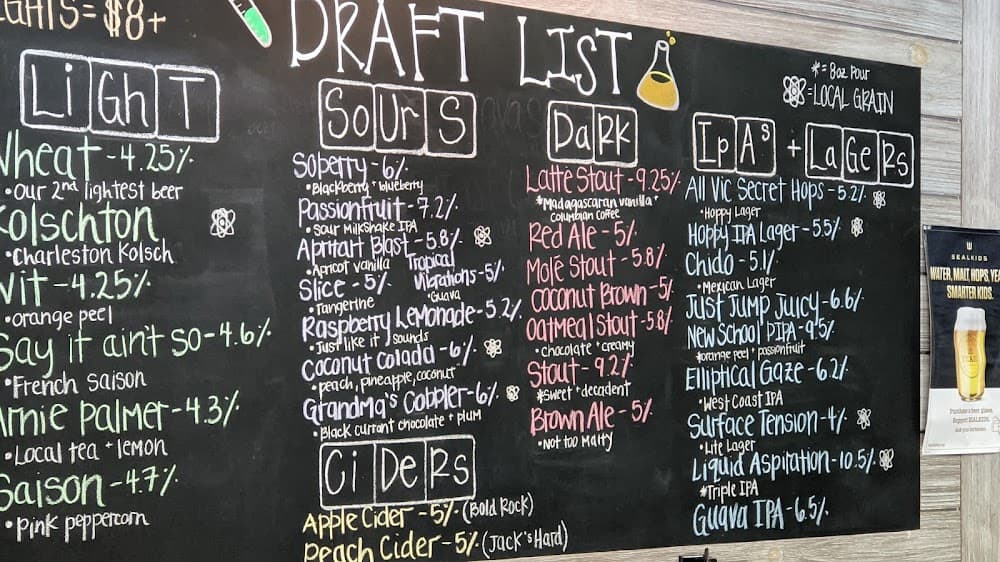 = $8+
DRAFT LIST
*= 8oz Pour
=LOCAL GRAIN
LiGhT
Wheat -4.25%
•our 2nd lightest beer
Kolschton
•Charleston Kolsch
Wit -4.25%
•orange peel
Say it ain't so -4.6%
•French saison
Arnie Palmer -4.3%
•Local tea + lemon
Saison -4.7%
•pink peppercorn
SoUrS
Soberry -6%
•Blackberry + blueberry
Passionfruit -7.2%
•Sour Milkshake IPA
Apritart Blast -5.8%
•Apricot vanilla
Tropical
Vibrations -5%
•Guava
Slice -5%
•Tangerine
Raspberry Lemonade -5.2%
•Just like it sounds
Coconut Colada -6%
•peach, pineapple, coconut
Grandma's Cobbler -6%
•Black currant chocolate + plum
CiDeRs
Apple Cider -5% (Bold Rock)
Peach Cider -5% (Jack's Hard)
DaRK
Latte Stout -9.25%
*Madagascaran vanilla +
Columbian coffee
Red Ale -5%
Molé Stout -5.8%
Coconut Brown -5%
Oatmeal Stout -5.8%
•chocolate + creamy
Stout -9.2%
*sweet + decadent
Brown Ale -5%
•Not too Malty
IpAs + LaGeRs
All Vic Secret Hops -5.2%
•Hoppy Lager
Hoppy IPA Lager -5.5%
Chido -5.1%
•Mexican Lager
Just Jump Juicy -6.6%
New School PIPA -9.5%
*orange peel + passionfruit
Elliptical Gaze -6.2%
•West Coast IPA
Surface Tension -4%
•Lite Lager
Liquid Aspiration -10.5%
*Triple IPA
Guava IPA -6.5%
SEALKIDS
WATER, MALT, HOPS, YEA
SMARTER KIDS.
Purchase a beer glass,
Support SEALKIDS.